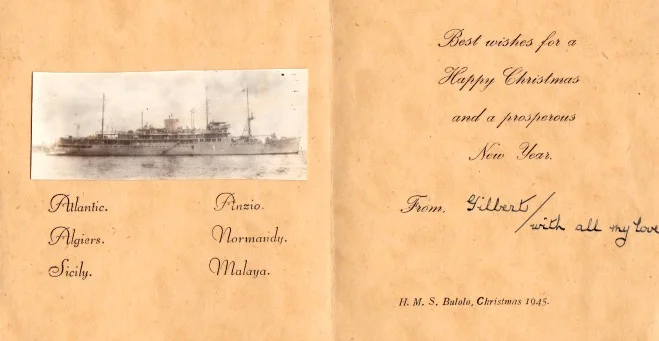 Atlantic.
Algiers.
Sicily.
Anzio.
Normandy.
Malaya.
Best wishes for a
Happy Christmas
and a prosperous
New Year.
From, Gilbert/
with all my love
H. M. S. Bulolo, Christmas 1945.